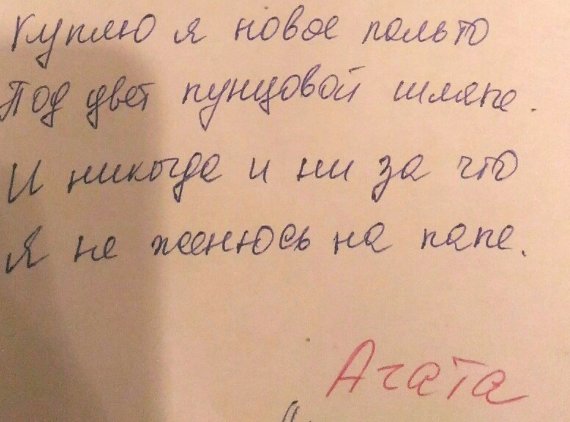 Куплю я новое пальто
Под цвет пунцовой шляпе.
И никогда и ни за что
Я не женюсь на папе.
Агата